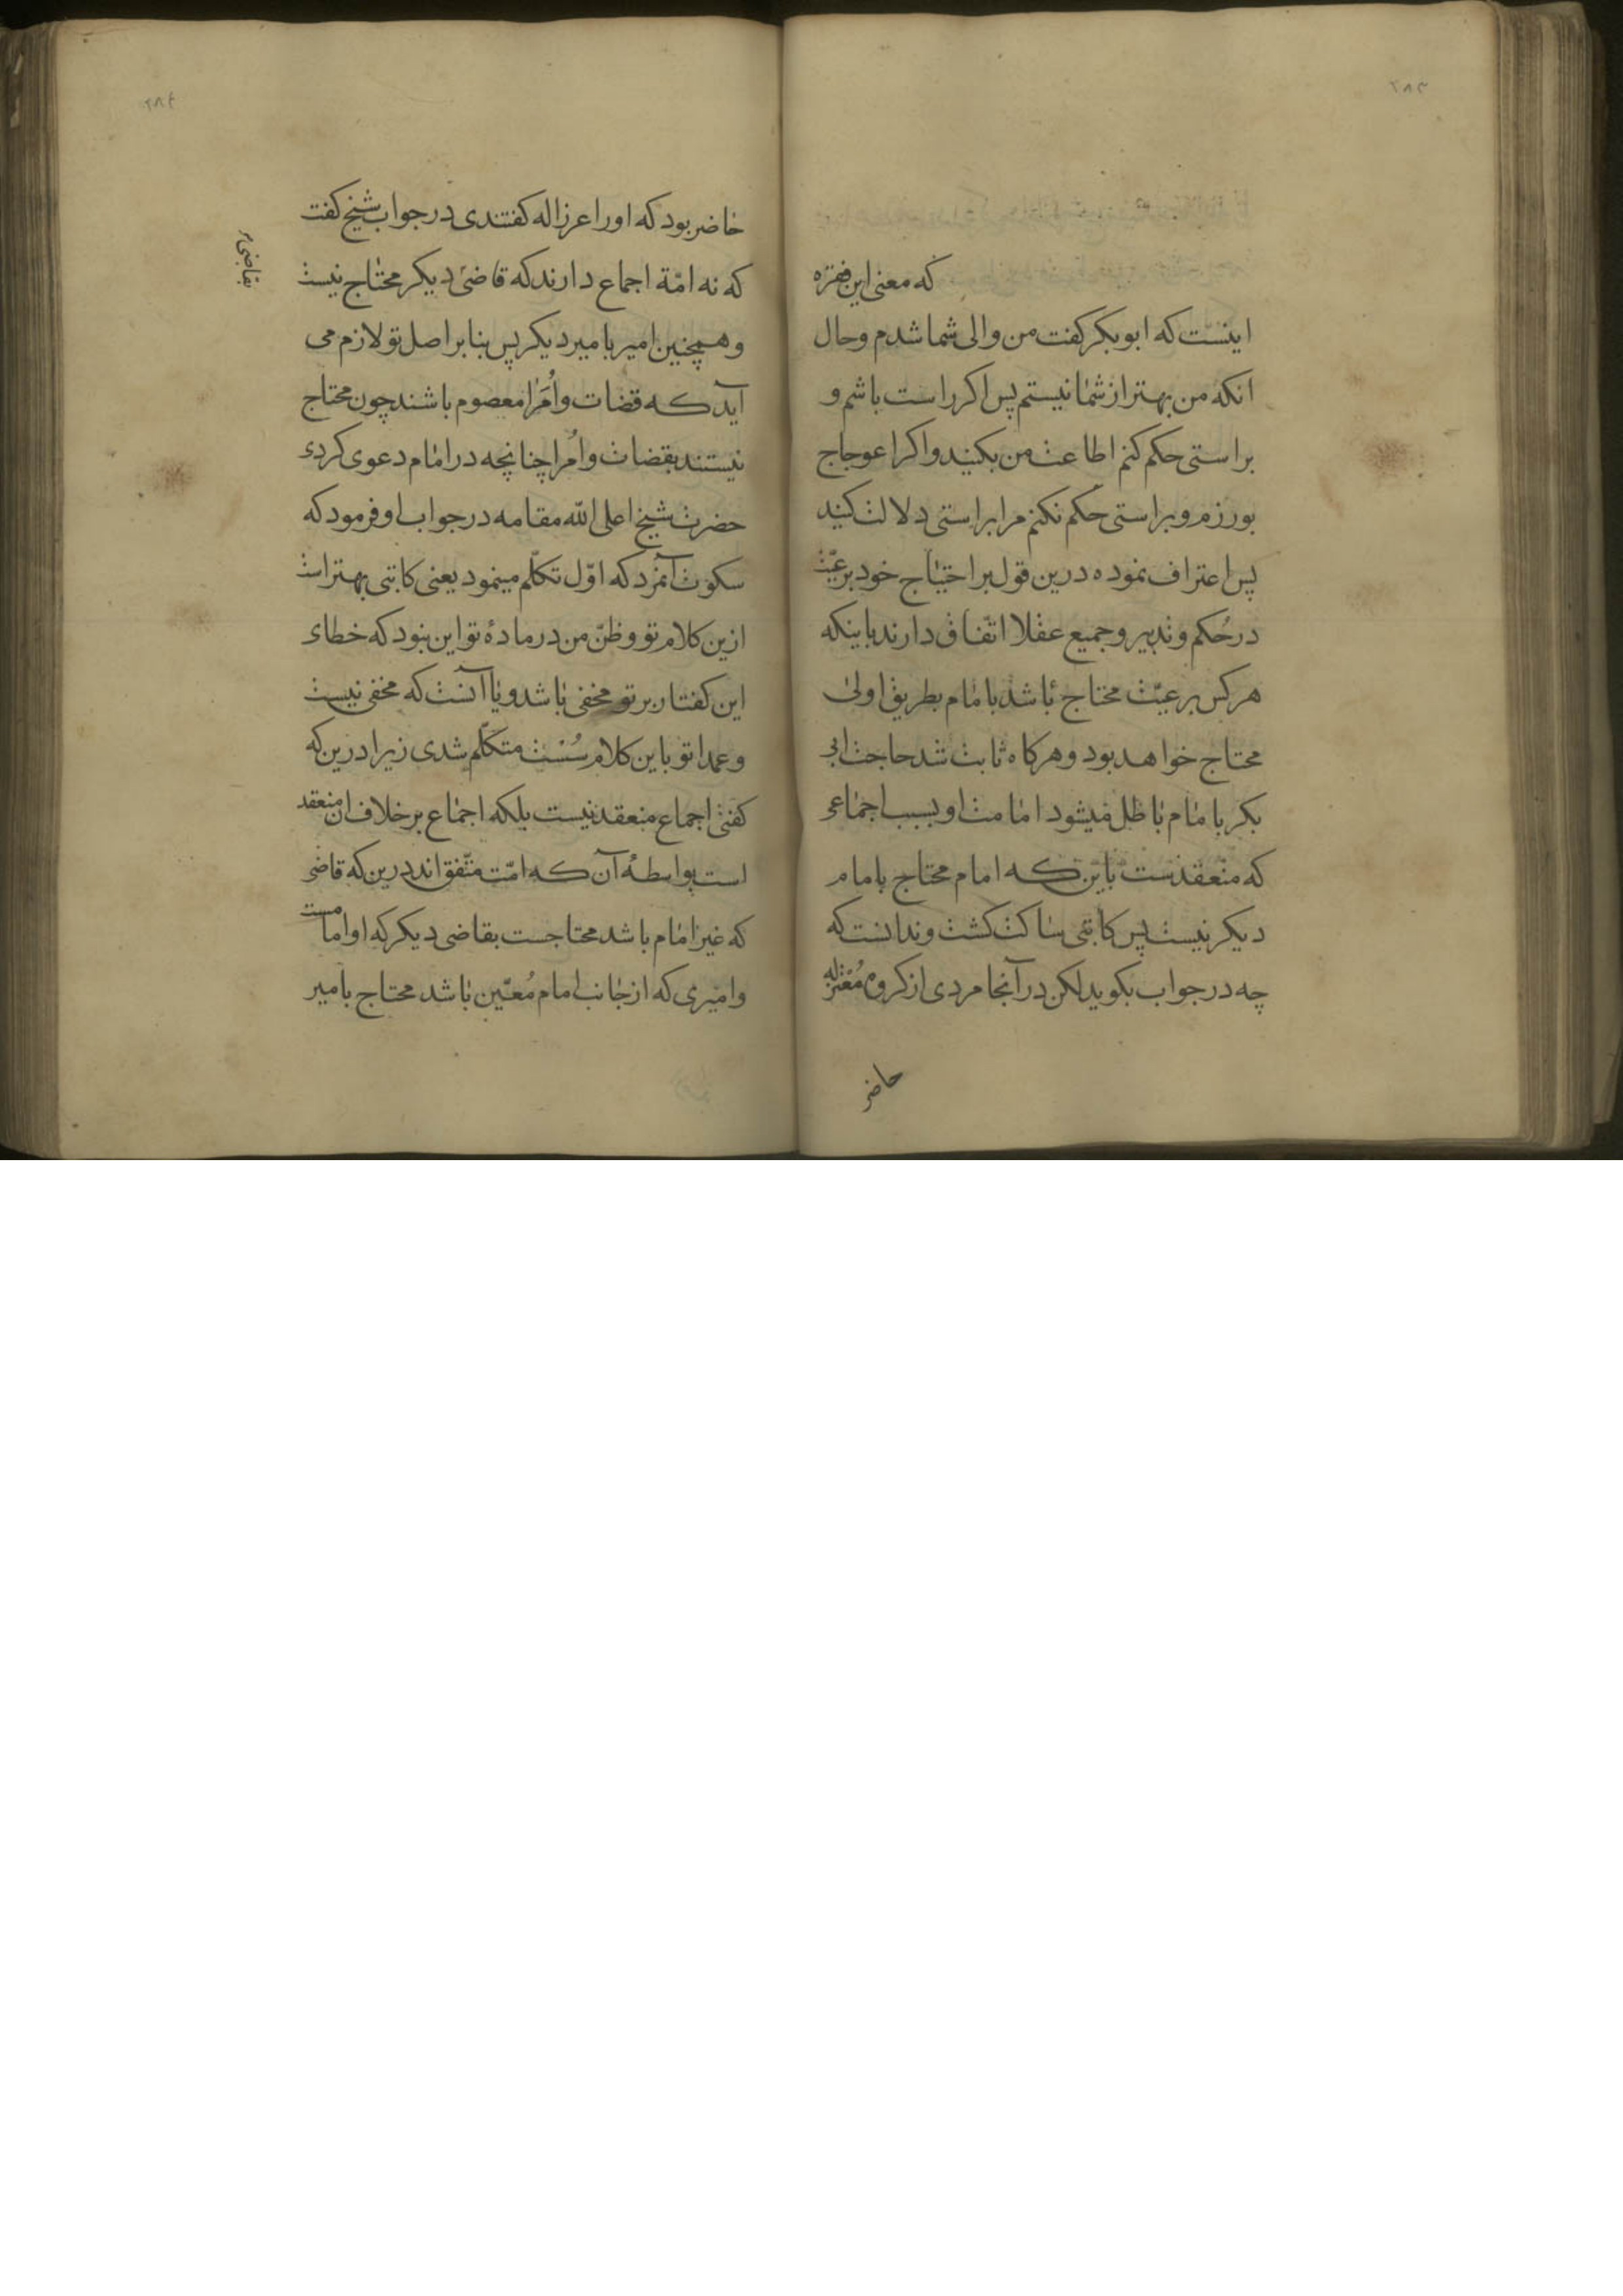 ۲۸۳
که معنی این فقره
اینست که ابوبکر گفت من والی شما شدم وحال
انکه من بهتر از شما نیستم پس اکر راست باشم و
براستی حکم کنم اطاعت من بکنید واکر اعوجاج
بورزم وبراستی حکم نکنم مرا براستی دلالت کنید
پس اعتراف نموده درین قول بر احتیاج خود برعیّت
در حُکم وتدبیر وجمیع عقلا اتّفاق دارند باینکه
هرکس برعیّت محتاج باشد بامام بطریق اولی
محتاج خواهد بود وهرکاه ثابت شد حاجت ابی
بکر بامام باطل میشود امامت او بسبب اجماعی
که منعقدست باین که امام محتاج بامام
دیکر نیست پس کاتبی ساکت کشت وندانست که
چه در جواب بکوید لکن در آنجا مردی از کروه مُعْتزله
حاضر
۲۸۴
حاضر بود که اورا عرزاله کفتندی در جواب شیخ کفت
که نه امّة اجماع دارند که قاضی دیکر محتاج نیست
بقاضی
وهمچنین امیر بامیر دیکر پس بنا بر اصل تو لازم می
آید که قضات واُمَرا معصوم باشند چون محتاج
نیستند بقضات واُمرا چنانچه در امام دعوی کردی
حضرت شیخ اعلی الله مقامه در جواب او فرمود که
سکوت آنمرد که اوّل تکلّم مینمود یعنی کاتبی بهتر است
ازین کلام تو وظنّ من در مادهٔ تو این نبود که خطای
این کفتار بر تو مخفی باشد ویا آنست که مخفی نیست
وعمدا تو باین کلام سُسْت متکلّم شدی زیرا درین که
کفتی اجماع منعقد نیست بلکه اجماع بر خلاف ان منعقد
است بواسطهٔ آن که امّت متّفق اند درین که قاضی
که غیر امام باشد محتاجست بقاضی دیکر که او امامست
وامیری که از جانب امام مُعیّن باشد محتاج بامیر